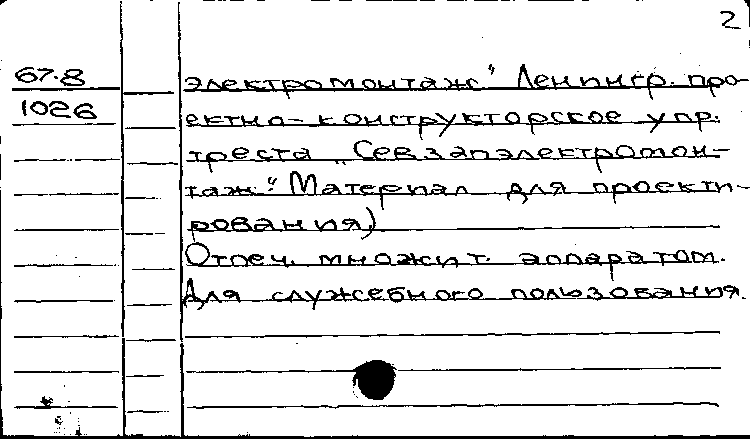 2
67-8
1026
электромонтаж" Ленингр. про-
ектно-конструкторское упр.
треста „Севзапэлектромон-
таж." Материал для проекти-
рования)
Отпеч. множит. аппаратом.
Для служебного пользования.